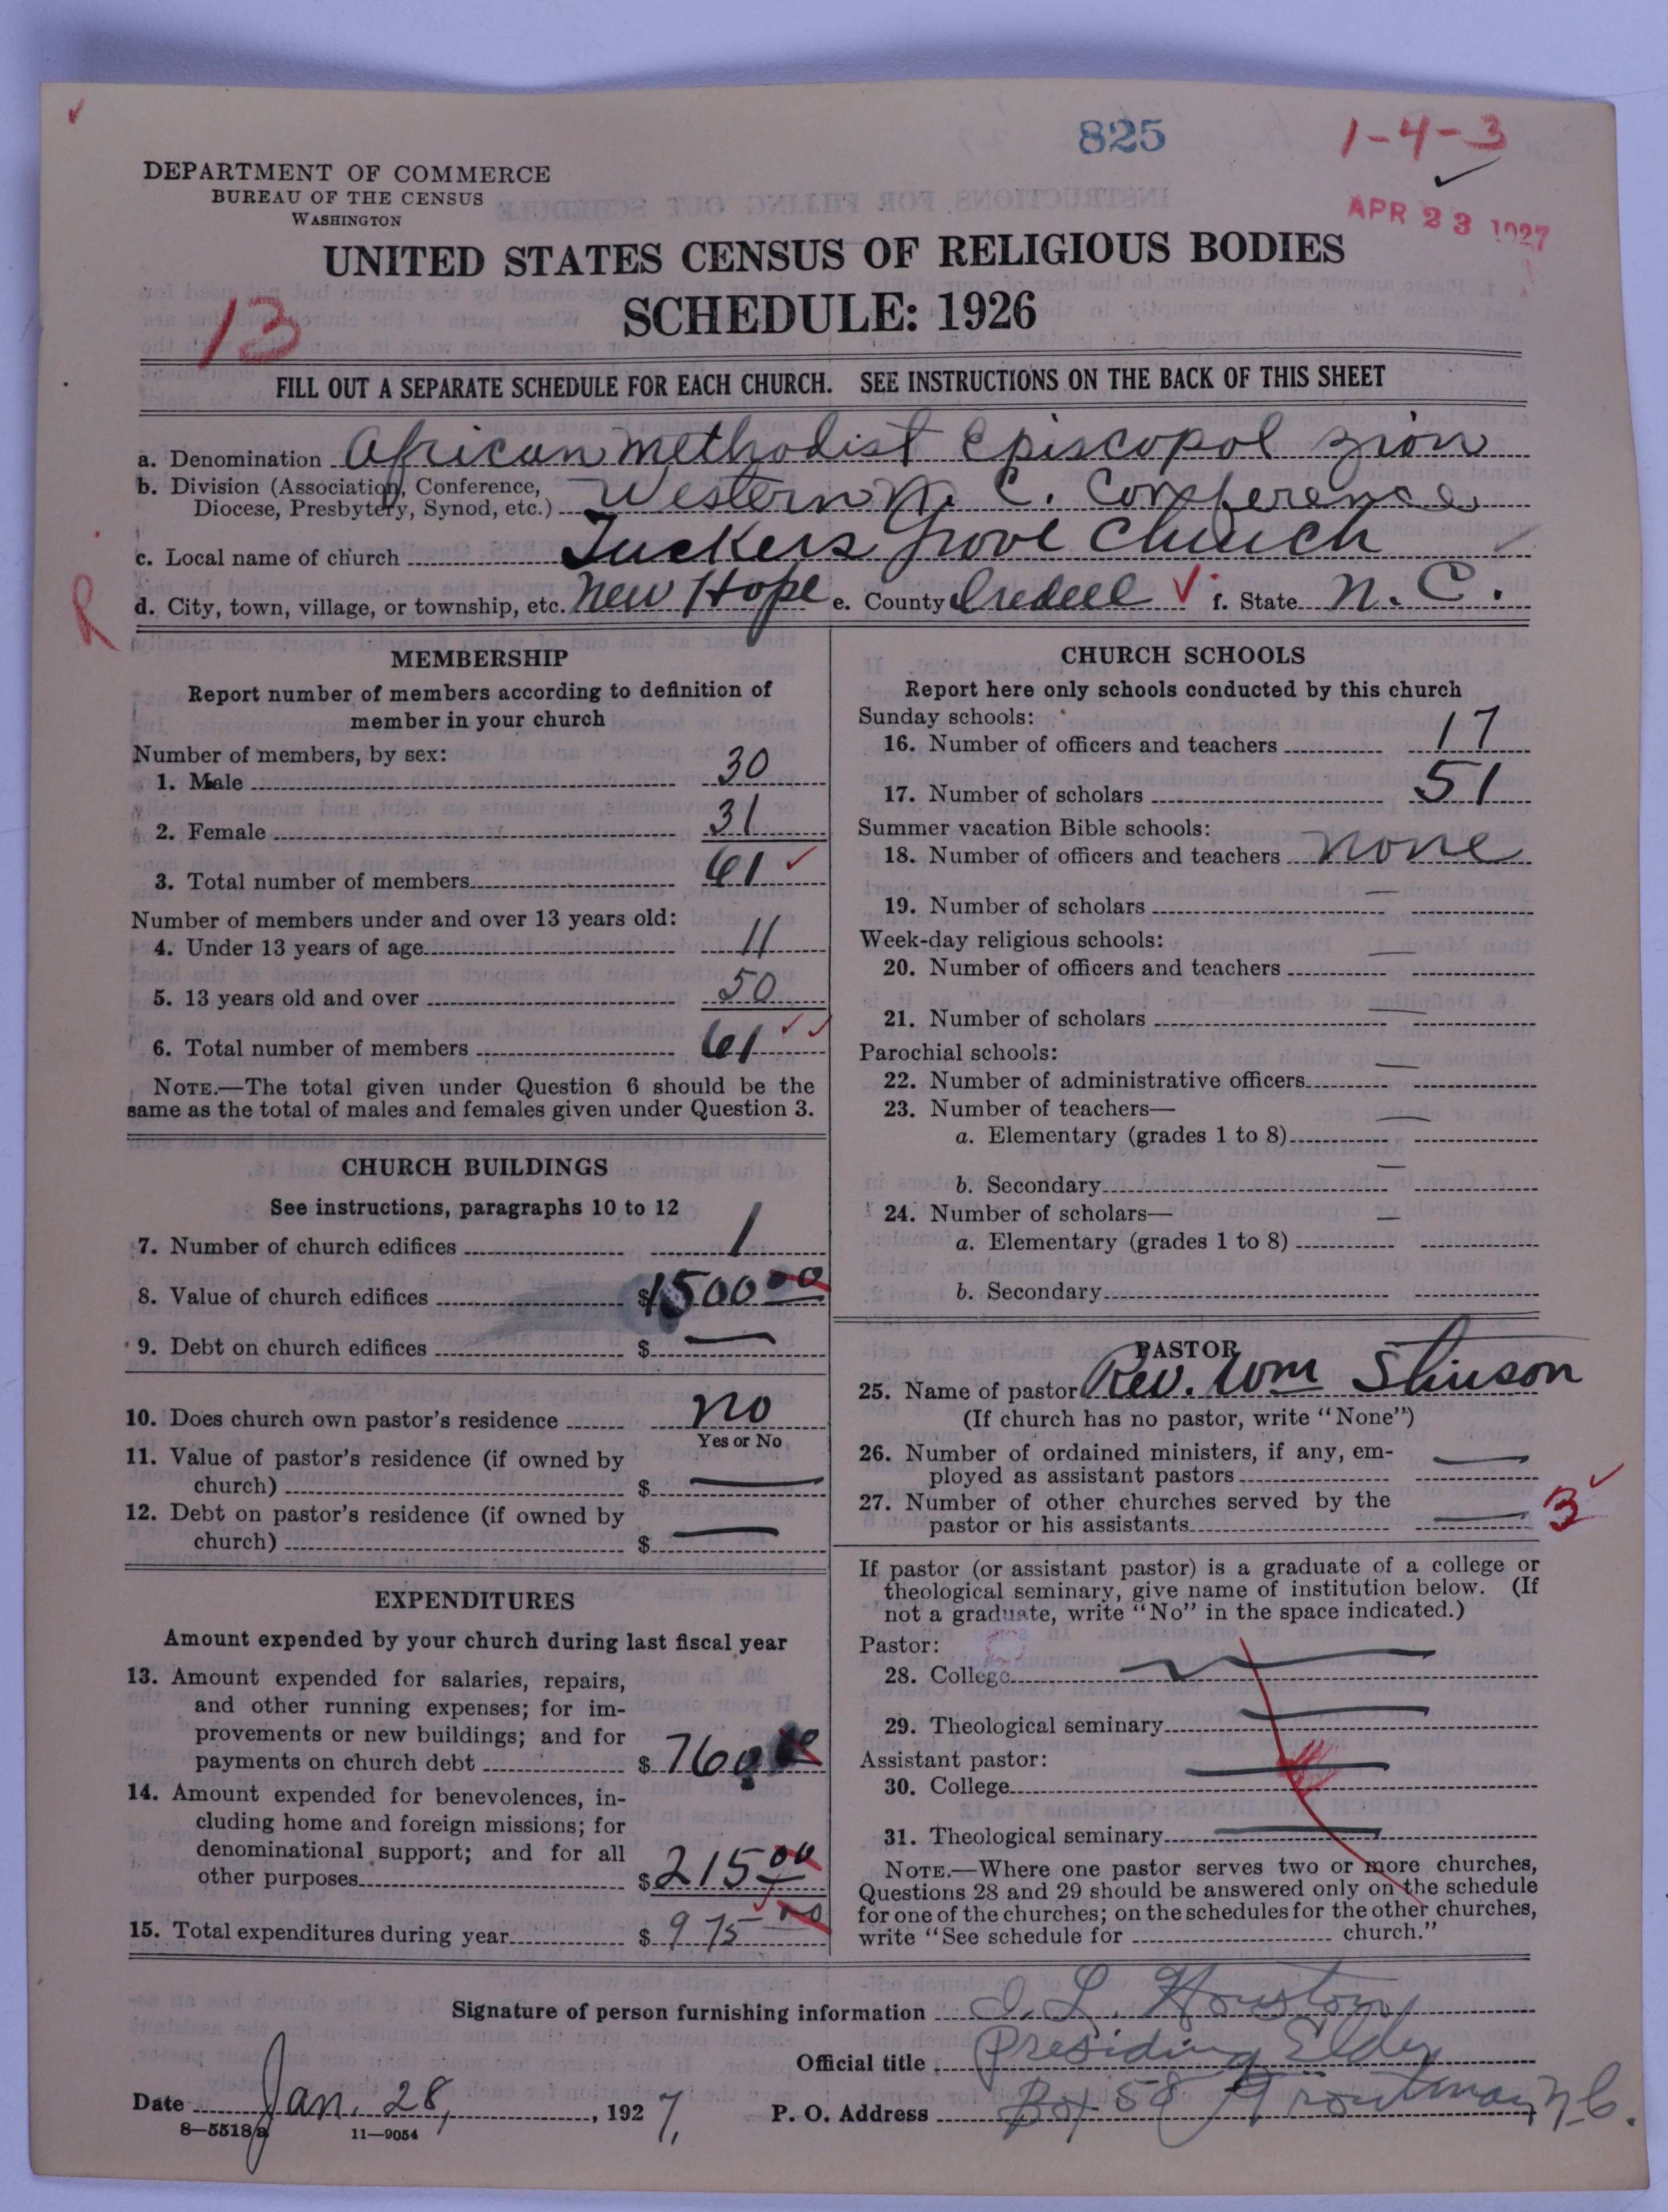 825
1-4-3
APR 23 1927
DEPARTMENT OF COMMERCE
BUREAU OF THE CENSUS
WASHINGTON
UNITED STATES CENSUS OF RELIGIOUS BODIES
SCHEDULE: 1926
13
FILL OUT A SEPARATE SCHEDULE FOR EACH CHURCH. SEE INSTRUCTIONS ON THE BACK OF THIS SHEET
a. Denomination African Methodist Episcopol Zion
b. Division (Association, Conference, Diocese, Presbytery, Synod, etc.) Western N. C. Conference
c. Local name of church Tuckers Grove Church
R
d. City, town, village, or township, etc. New Hope e. County Iredell f. State N. C.
MEMBERSHIP
Report number of members according to definition of
member in your church
Number of members, by sex:
1. Male 30
2. Female 31
3. Total number of members 61
Number of members under and over 13 years old:
4. Under 13 years of age 11
5. 13 years old and over 50
6. Total number of members 61
NOTE.—The total given under Question 6 should be the
same as the total of males and females given under Question 3.
CHURCH BUILDINGS
See instructions, paragraphs 10 to 12
7. Number of church edifices 1
8. Value of church edifices $1500 00
9. Debt on church edifices $ —
10. Does church own pastor's residence no
Yes or No
11. Value of pastor's residence (if owned by
church) $ —
12. Debt on pastor's residence (if owned by
church) $ —
EXPENDITURES
Amount expended by your church during last fiscal year
13. Amount expended for salaries, repairs,
and other running expenses; for im-
provements or new buildings; and for
payments on church debt $ 760
14. Amount expended for benevolences, in-
cluding home and foreign missions; for
denominational support; and for all
other purposes $ 215 00
15. Total expenditures during year $ 975 00
CHURCH SCHOOLS
Report here only schools conducted by this church
Sunday schools:
16. Number of officers and teachers 17
17. Number of scholars 51
Summer vacation Bible schools:
18. Number of officers and teachers none
19. Number of scholars —
Week-day religious schools:
20. Number of officers and teachers —
21. Number of scholars —
Parochial schools:
22. Number of administrative officers —
23. Number of teachers—
a. Elementary (grades 1 to 8) —
b. Secondary —
24. Number of scholars—
a. Elementary (grades 1 to 8) —
b. Secondary
PASTOR
25. Name of pastor Rev. Wm Stinson
(If church has no pastor, write "None")
26. Number of ordained ministers, if any, em-
ployed as assistant pastors —
27. Number of other churches served by the
pastor or his assistants — 3
If pastor (or assistant pastor) is a graduate of a college or
theological seminary, give name of institution below. (If
not a graduate, write "No" in the space indicated.)
Pastor:
28. College —
29. Theological seminary —
Assistant pastor:
30. College —
31. Theological seminary —
NOTE.—Where one pastor serves two or more churches,
Questions 28 and 29 should be answered only on the schedule
for one of the churches; on the schedules for the other churches,
write "See schedule for church."
Signature of person furnishing information I. L. Houston
Official title Presiding Elder
Date Jan. 28, 1927, P. O. Address Box 58 Troutman N.C.
8—5518a 11—9054